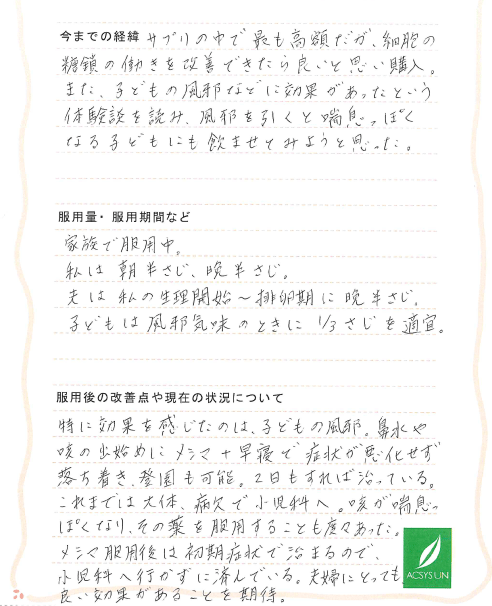 今までの経緯 サプリの中で最も高額だが、細胞の
糖鎖の働きを改善できたら良いと思い購入。
また、子どもの風邪などに効果があったという
体験談を読み、風邪を引くと喘息っぽく
なる子どもにも飲ませてみようと思った。
服用量・服用期間など
家族で服用中。
私は 朝半さじ、晩半さじ。
夫は 私の生理開始〜排卵期に 晩半さじ。
子どもは風邪気味のときに 1/3さじを適宜。
服用後の改善点や現在の状況について
特に効果を感じたのは、子どもの風邪。鼻水や
咳の出始めにメシマ+早寝で症状が悪化せず
落ち着き、登園も可能。2日もすれば治っている。
これまでは大体、病欠で小児科へ。咳が喘息っ
ぽくなり、その薬を服用することも度々あった。
メシマ服用後は初期症状で治まるので、
小児科へ行かずに済んでいる。夫婦にとっても
良い効果があることを期待。
ACSYSUN